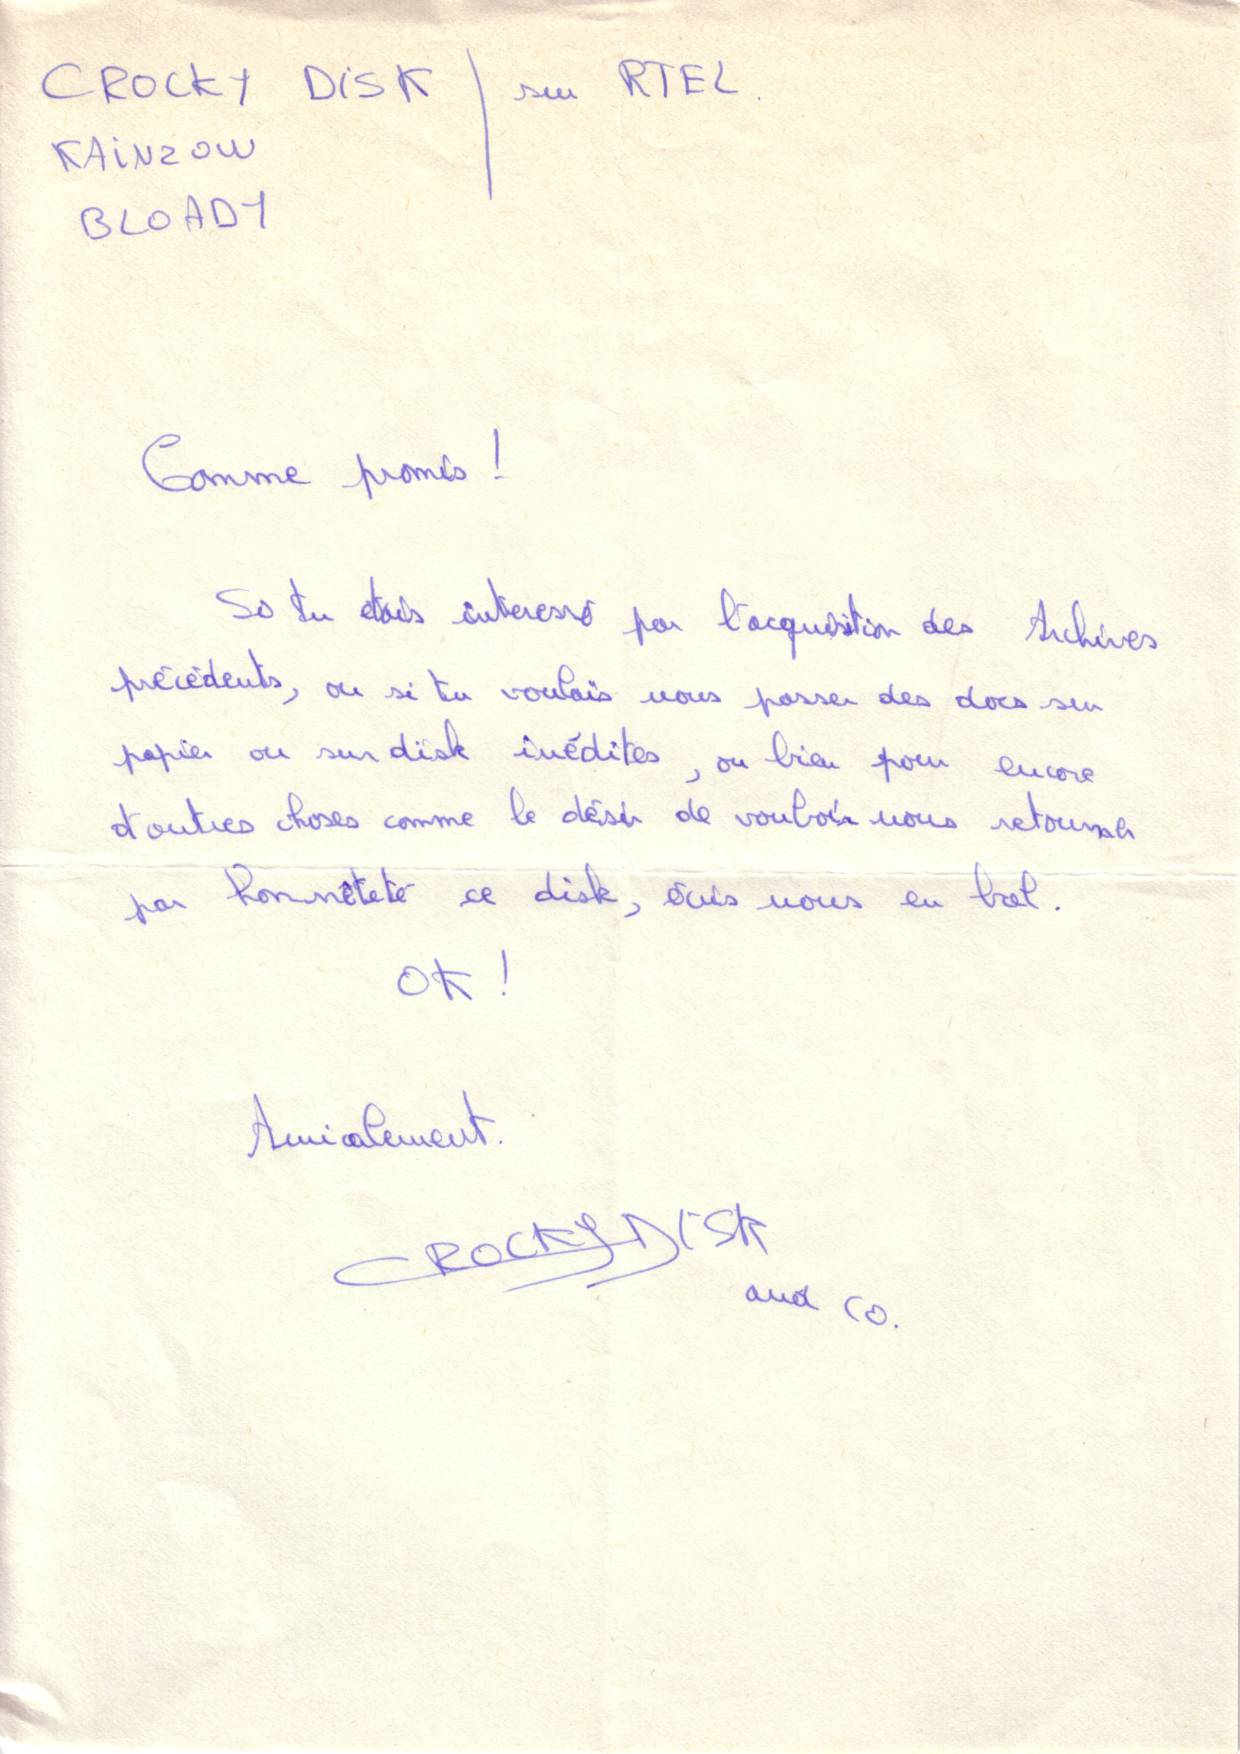 CROCKY DISK / sur RTEL.
KAINZOW
BLOADY
Comme promis !
Si tu étais intéressé par l'acquisition des Archives
précédents, ou si tu voulais nous passer des docs sur
papier ou sur disk inédites, ou bien pour encore
d'autres choses comme le désir de vouloir nous retourner
par honnêteté ce disk, écris nous en bal.
OK !
Amicalement.
CROCKY DISK
and co.